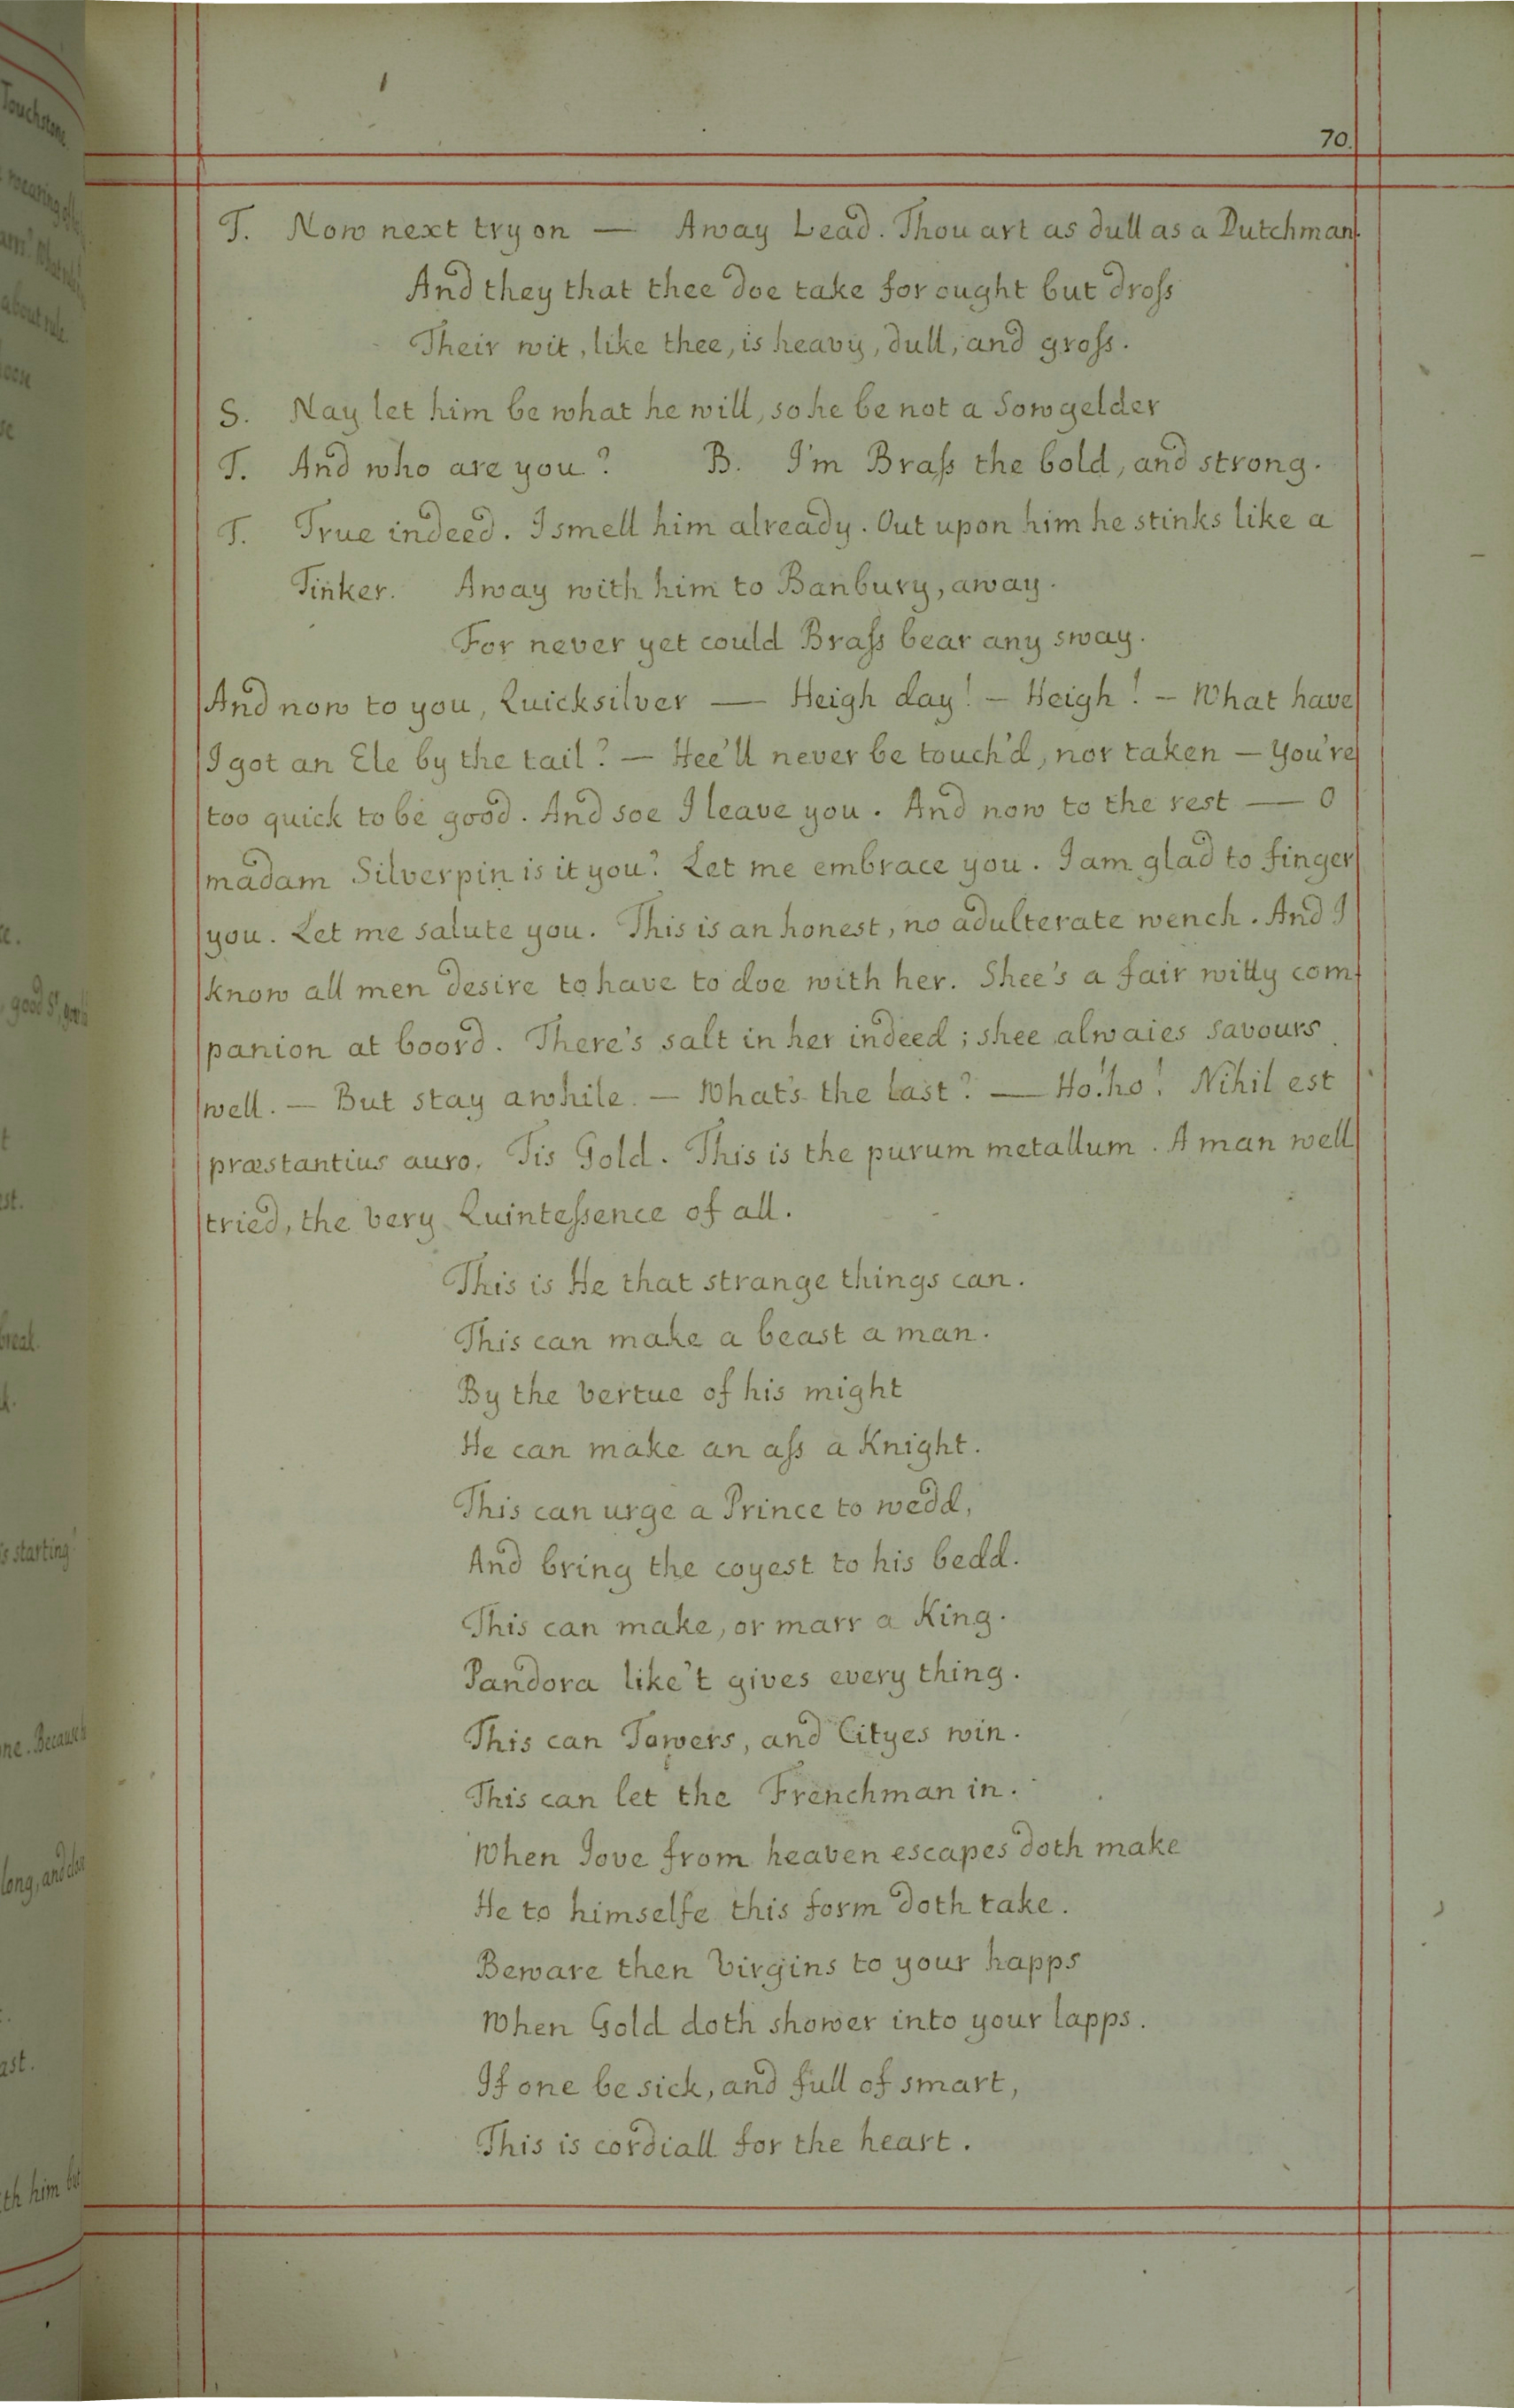 70.
T. Now next try on — Away Lead. Thou art as dull as a Dutchman.
And they that thee doe take for ought but droſs
Their wit, like thee, is heavy, dull, and groſs.
S. Nay let him be what he will, so he be not a Sowgelder
T. And who are you? B. I'm Braſs the bold, and strong.
T. True indeed. I smell him already. Out upon him he stinks like a
Tinker. Away with him to Banbury, away.
For never yet could Braſs bear any sway.
And now to you, Quicksilver — Heigh day! – Heigh! – What have
I got an Ele by the tail? – Hee'll never be touch'd, nor taken – You're
too quick to be good. And soe I leave you. And now to the rest — O
madam Silverpin is it you? Let me embrace you. I am glad to finger
you. Let me salute you. This is an honest, no adulterate wench. And I
know all men desire to have to doe with her. Shee's a fair witty com-
panion at boord. There's salt in her indeed; shee alwaies savours
well. – But stay awhile. – What's the last? — Ho! ho! Nihil est
præstantius auro. Tis Gold. This is the purum metallum. A man well
tried, the very Quinteſsence of all.
This is He that strange things can.
This can make a beast a man.
By the vertue of his might
He can make an aſs a Knight.
This can urge a Prince to wedd,
And bring the coyest to his bedd.
This can make, or marr a King.
Pandora like't gives every thing.
This can Towers, and Cityes win.
This can let the Frenchman in.
When Jove from heaven escapes doth make
He to himselfe this form doth take.
Beware then Virgins to your happs
When Gold doth shower into your lapps.
If one be sick, and full of smart,
This is cordiall for the heart.